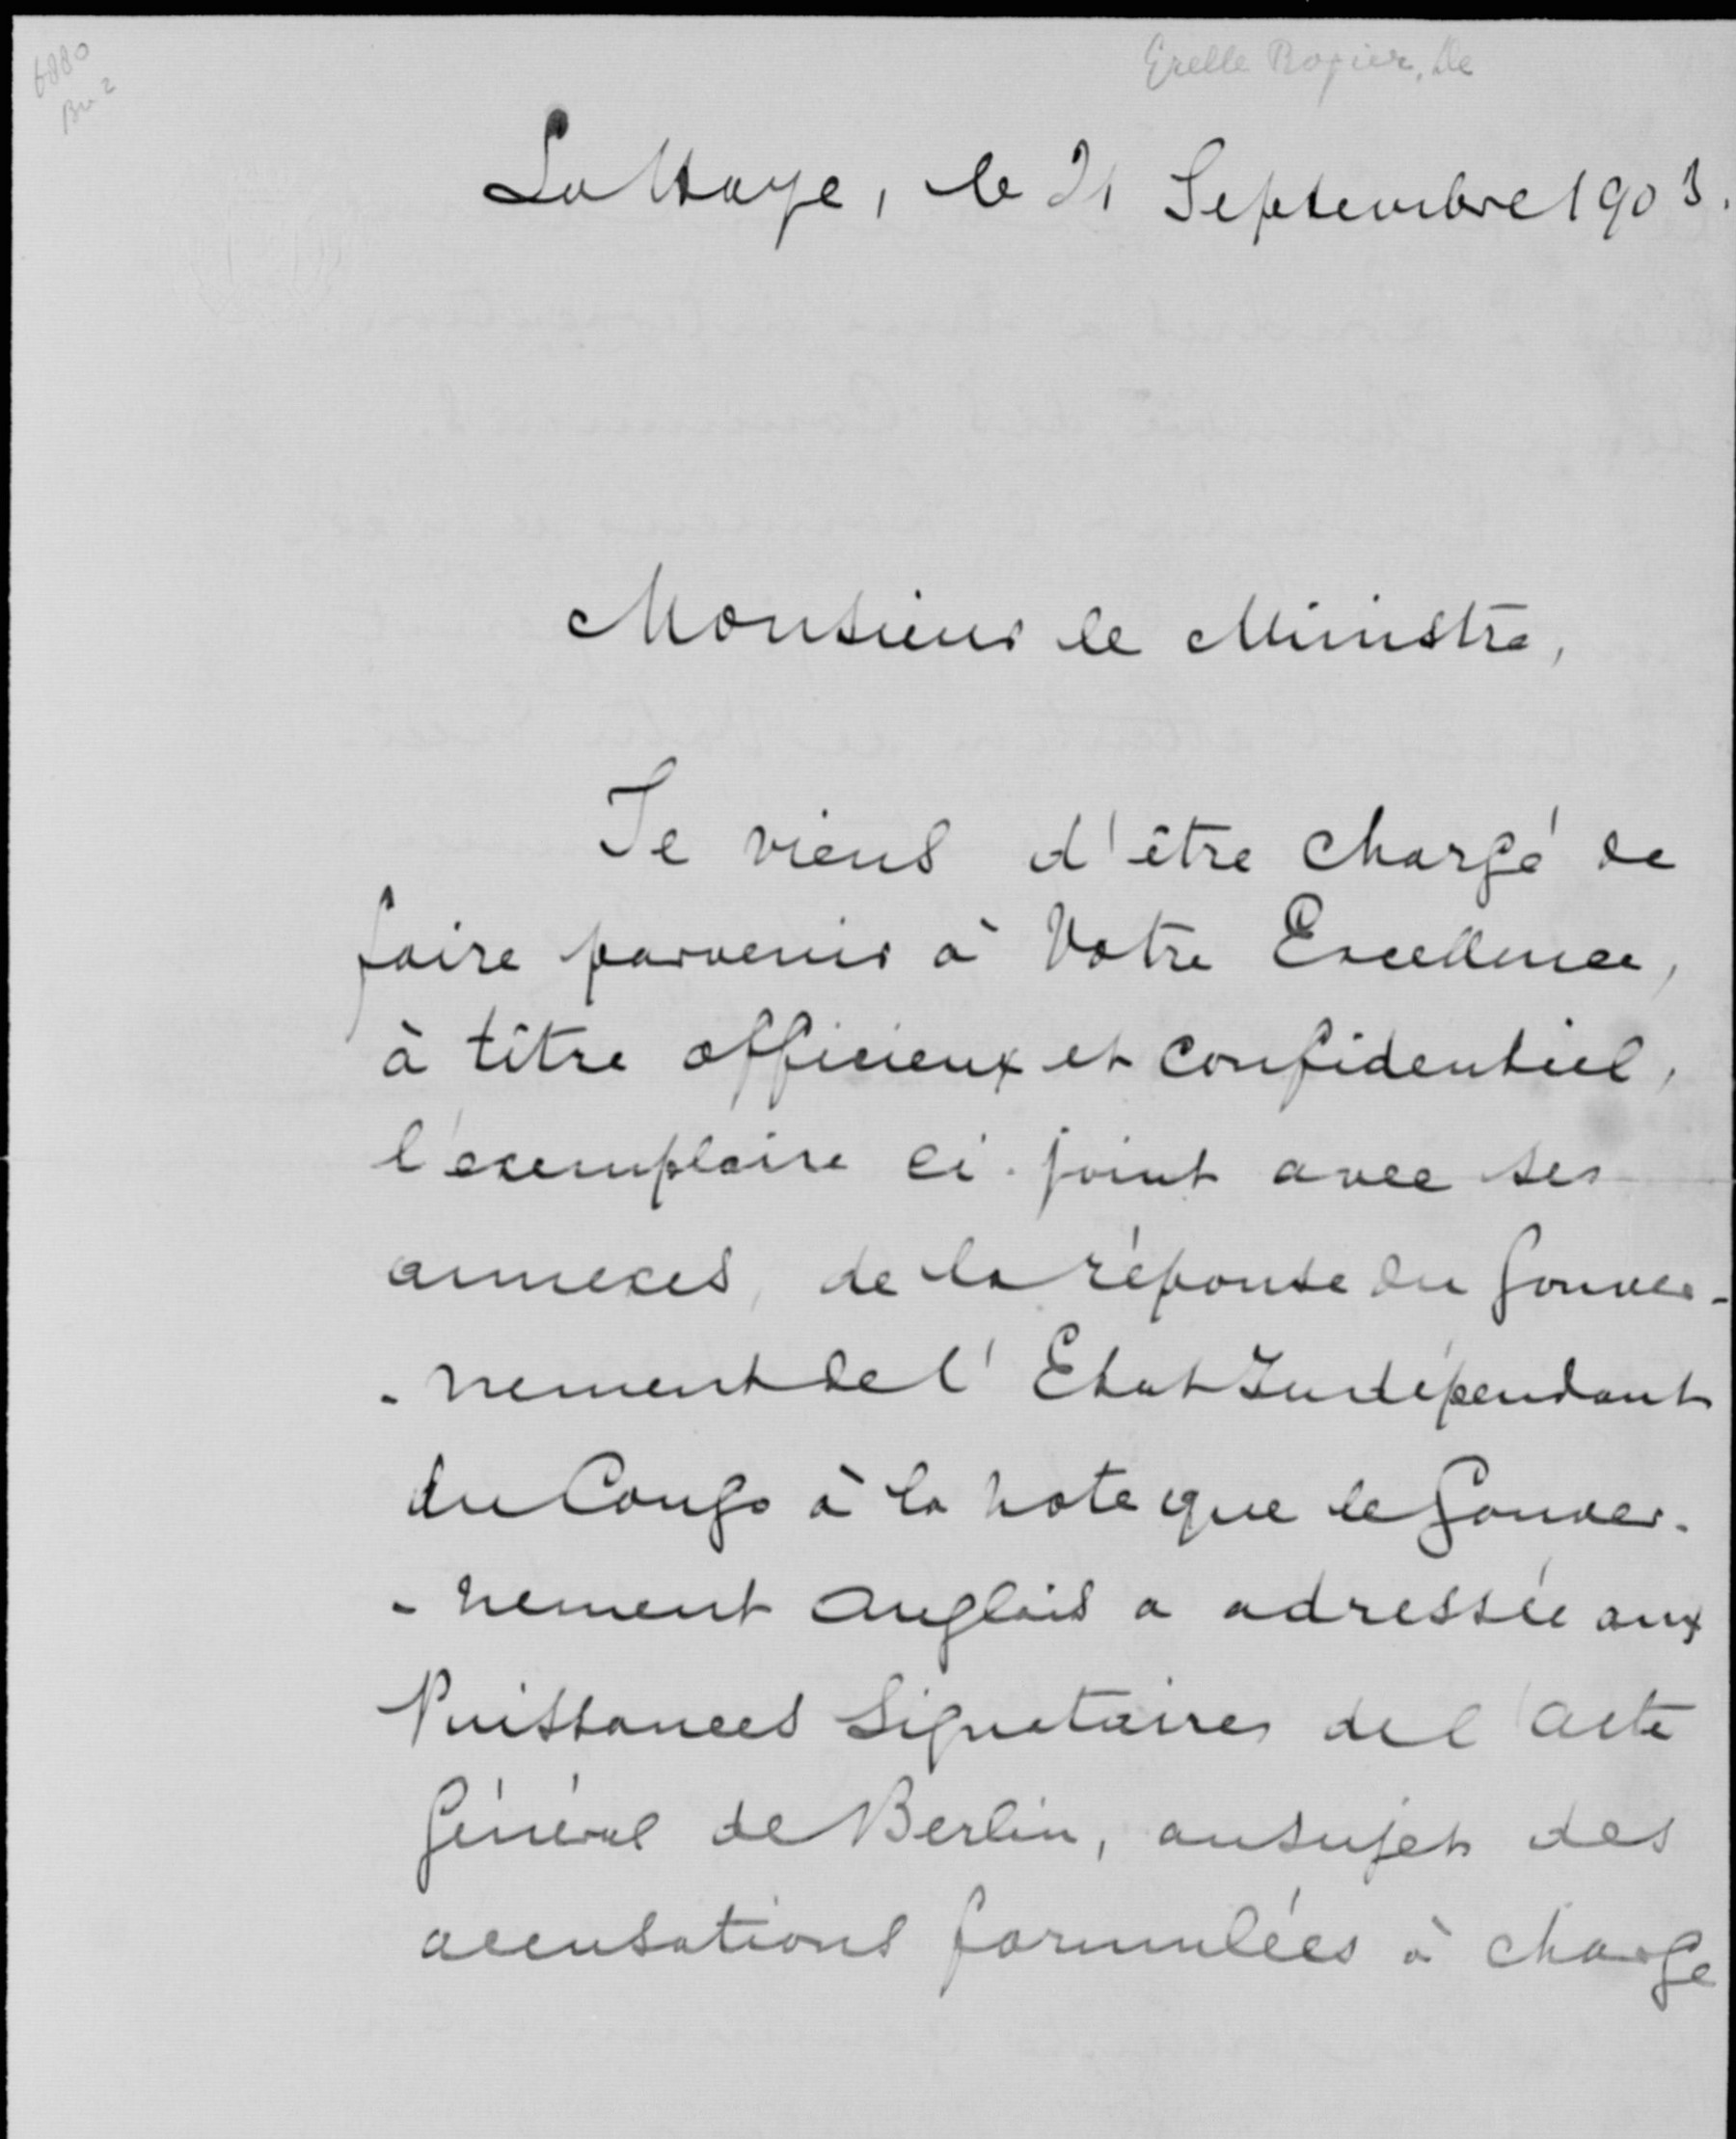 6880
Grelle Rogier, De
La Haye, le 21 Septembre 1903.
Monsieur le Ministre,
Je viens d'être chargé de
faire parvenir à Votre Excellence,
à tître officieux et confidentiel,
l'exemplaire ci-joint avec ses
annexes, de la réponse du Gouver-
-nement de l'Etat Indépendant
du Congo à la note que le Gouver-
-nement Anglais a adressée aux
Puissances Signataires de l'Acte
Général de Berlin, au sujet des
accusations formulées à charge